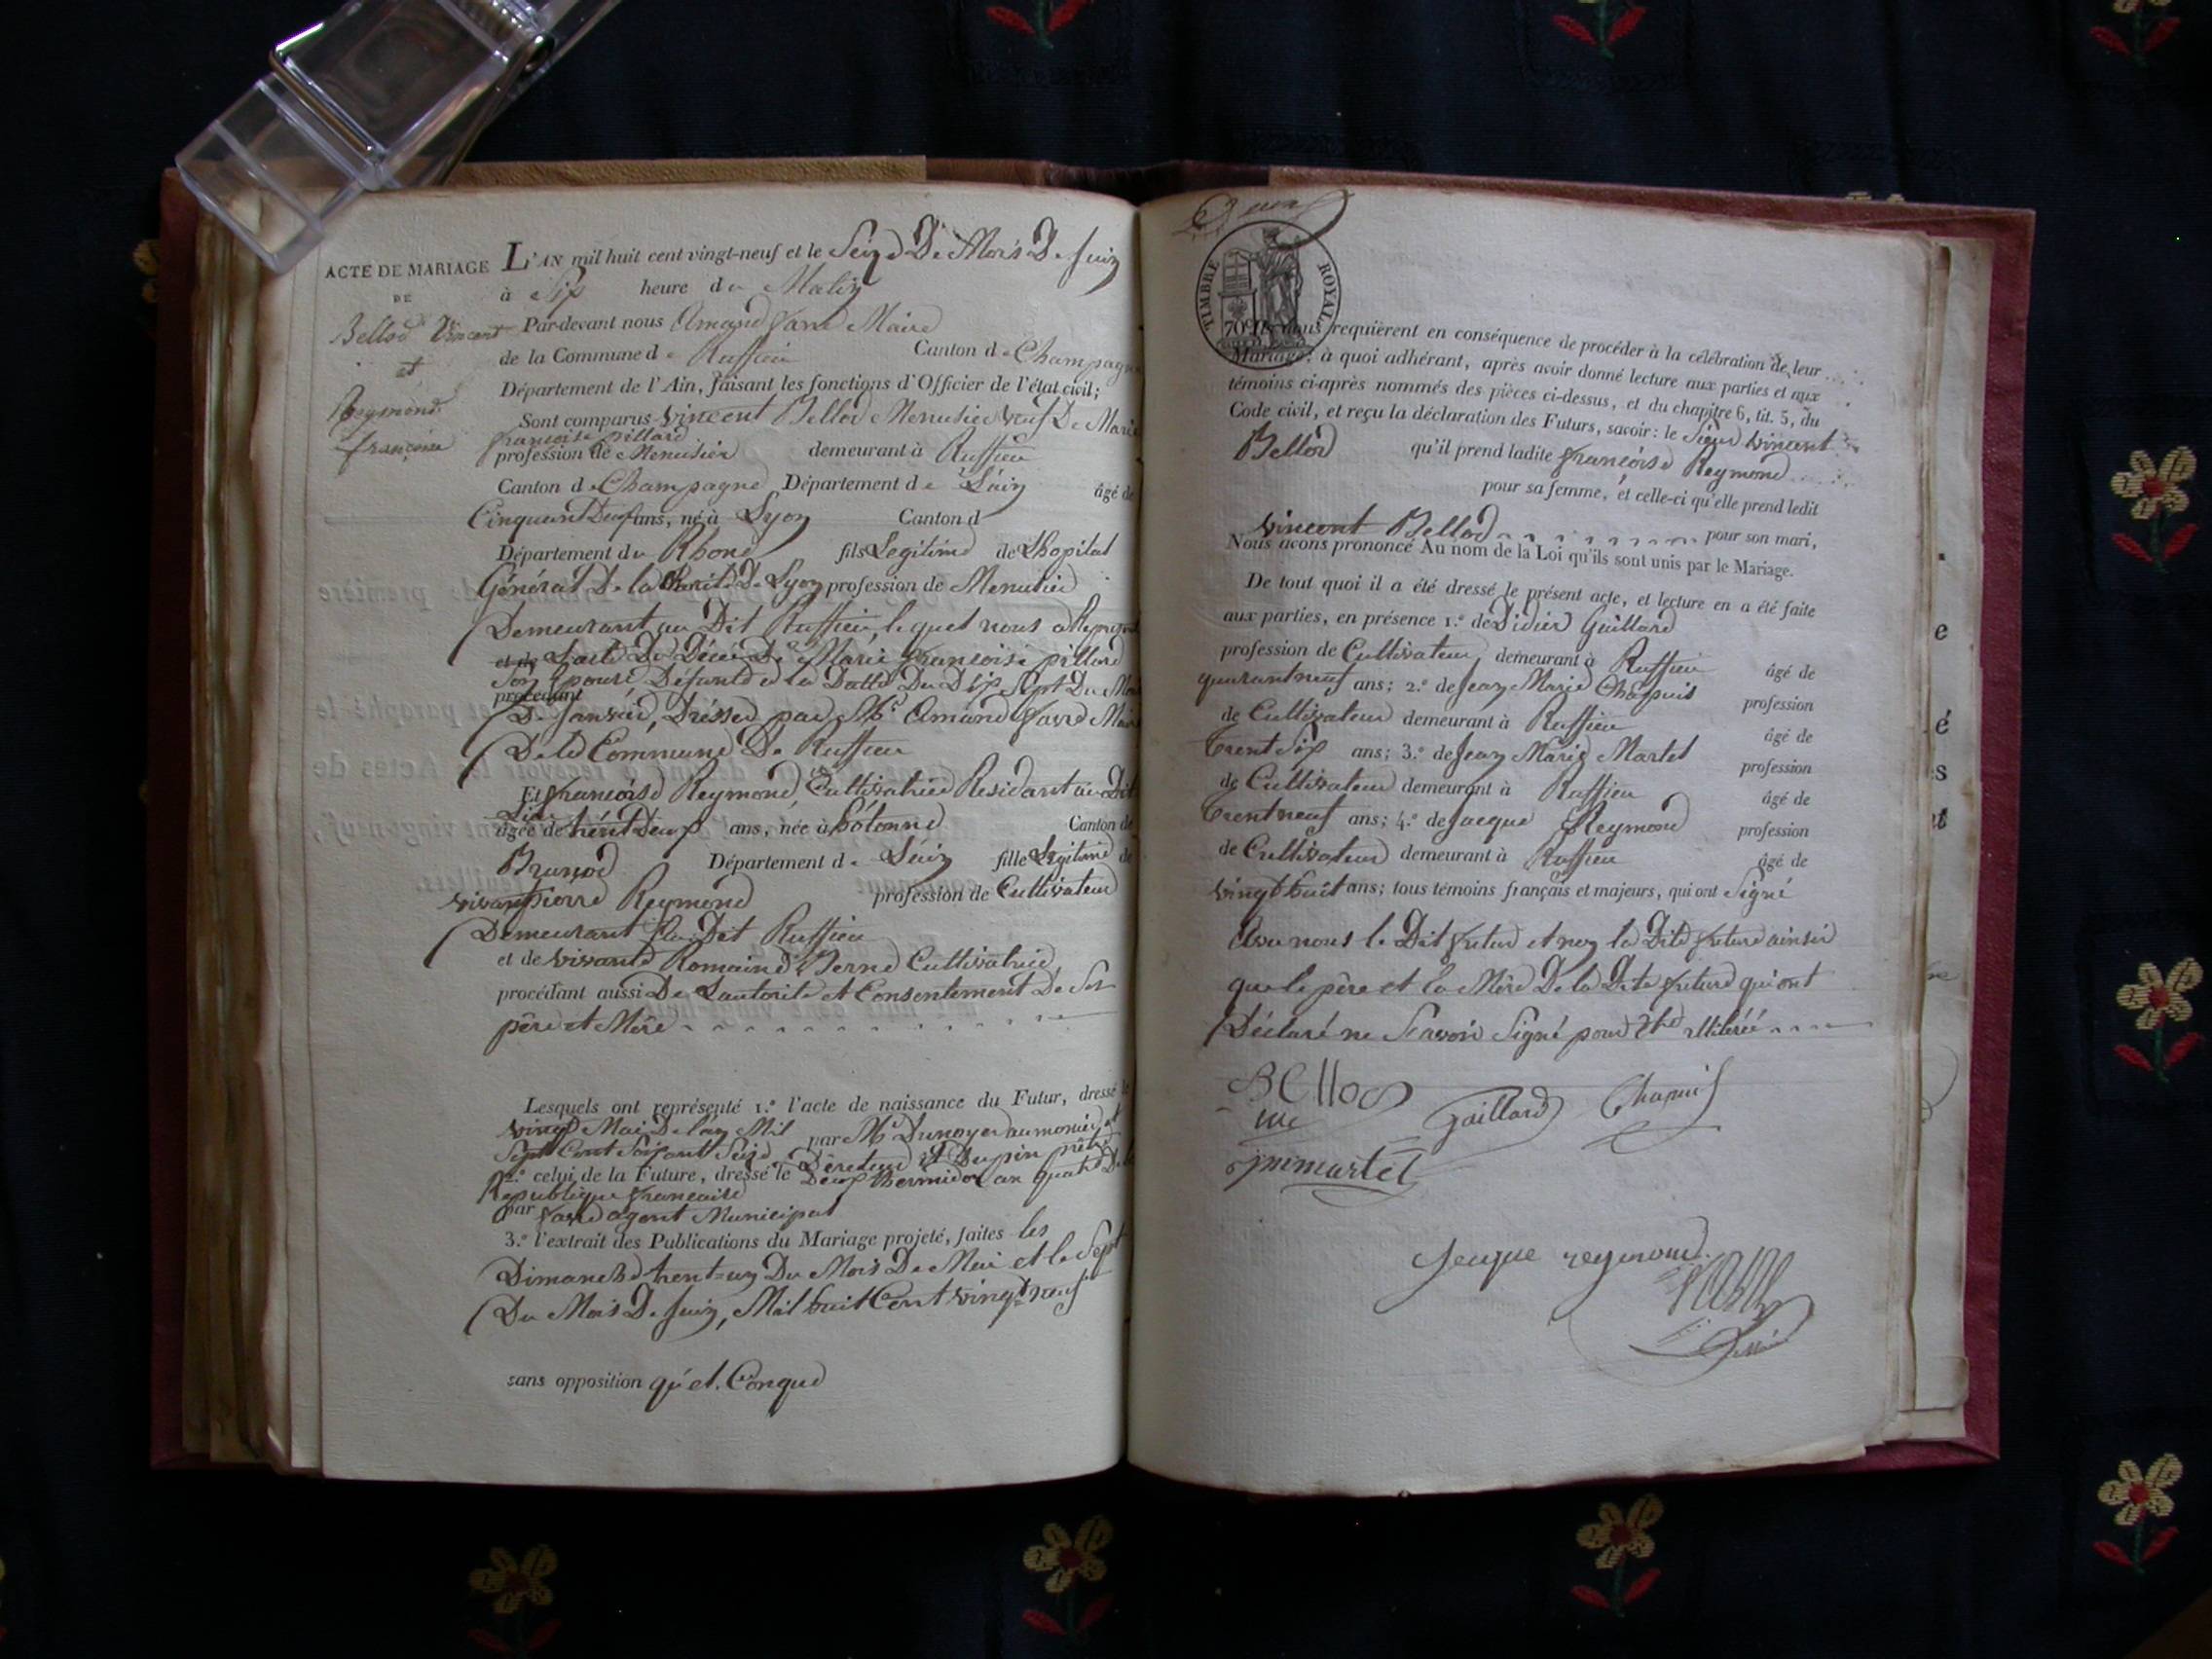 ACTE DE MARIAGE
DE
Bellod Vincent
et
Reymond
françoise
L'AN mil huit cent vingt-neuf et le Seize De Mois De Juin
à Six heure du Matin
Par-devant nous Amand favre Maire
de la Commune de Ruffieu Canton de Champagne
Département de l'Ain, faisant les fonctions d'Officier de l'état civil;
Sont comparus Vincent Bellod Menusier veuf De Marie
françoise pillard
profession de Menusier demeurant à Ruffieu
Canton de Champagne Département de L'ain âgé de
Cinquant Deux ans, né à Lyon Canton d
Département du Rhone fils Legitime de Lhopital
Général De la Charité De Lyon profession de Menusier
Demeurant au Dit Ruffieu, lequel nous a Represent
et de Lacte De Décè De Marie françoise pillard
Son Epouse Défunte a la Datte Du Dix Sept Du Mois
procédant
De Janvier, Dressé par Mr Amand favre Maire
De la Commune De Ruffieu
Et françoise Reymond, Cultivatrice Residant au Dit
Lieu
âgée de trent Deux ans, née à hotonne Canton de
Brenod Département de L'ain fille Legitime de
vivant pierre Reymond profession de Cultivateur
Demeurant au Dit Ruffieu
et de vivante Romaine Berne Cultivatrice
procédant aussi De Lautorite et Consentement De Ses
père et Mère
Lesquels ont représenté 1.º l'acte de naissance du Futur, dressé le
vingt Mai De lan Mil par Mr Dunoyer aumonier, et
Sept Cent Soixant Seize Directeur et Dupin prêtre
2.º celui de la Future, dressé le Deux thermidor an quatre De la
Republique francaise
par favre agent Municipal
3.º l'extrait des Publications du Mariage projeté, faites les
Dimanche trent-un Du Mois De Mai et le Sept
Du Mois De Juin, Mil huit Cent vingt neuf
sans opposition quel.Conque
TIMBRE ROYAL
70.c Ils nous requièrent en conséquence de procéder à la célébration de leur
Mariage: à quoi adhérant, après avoir donné lecture aux parties et aux
témoins ci-après nommés des pièces ci-dessus, et du chapitre 6, tit. 5, du
Code civil, et reçu la déclaration des Futurs, savoir: le Sieur Vincent
Bellod qu'il prend ladite françoise Reymond
pour sa femme, et celle-ci qu'elle prend ledit
Vincent Bellod pour son mari,
Nous avons prononcé Au nom de la Loi qu'ils sont unis par le Mariage.
De tout quoi il a été dressé le présent acte, et lecture en a été faite
aux parties, en présence 1.º de Didier Guillard
profession de Cultivateur demeurant à Ruffieu âgé de
quarantneuf ans; 2.º de Jean Marie Chapuis profession
de Cultivateur demeurant à Ruffieu âgé de
trent Six ans; 3.º de Jean Marie Martel profession
de Cultivateur demeurant à Ruffieu âgé de
trent neuf ans; 4.º de Jacque Reymond profession
de Cultivateur demeurant à Ruffieu âgé de
vingt huit ans; tous témoins français et majeurs, qui ont Signé
Avec nous le Dit futur et non la Dite future ainsi
que le père et la Mère De la Dite future qui ont
Déclaré ne Savoir Signé pour
Bellod
Gaillard Chapuis
jmmartel
Jeuque reymond